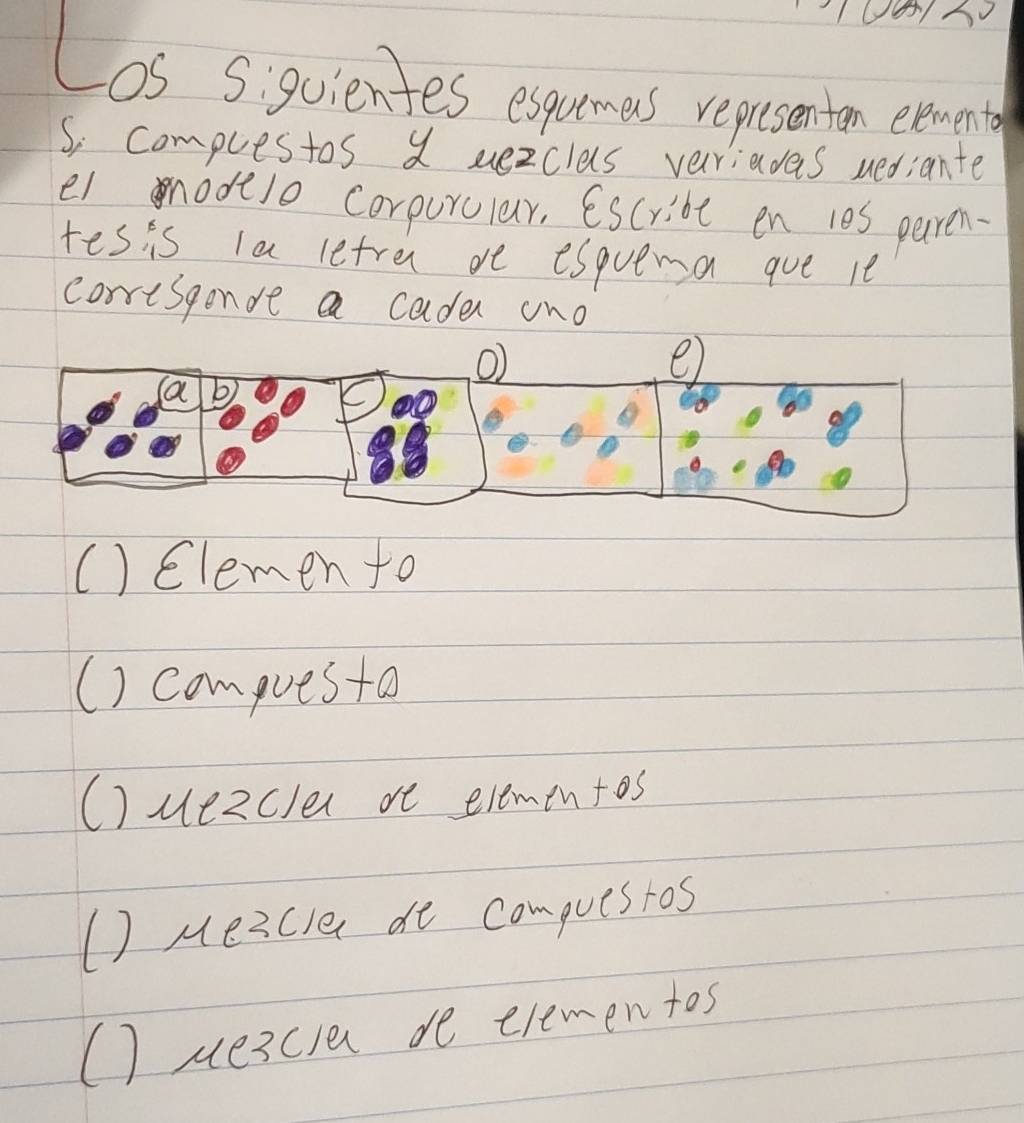 Los Siguientes esquemas representan elemento
s, compuestos y mezclas variadas mediante
el modelo corpurular. Escribe en los paren-
tesis la letra de esquema que le
corresponde a cada uno
(a b) c) D) e)
() Elemento
() compuesto
() Mezcla de elementos
() Mezcla de compuestos
() Mezcla de elementos